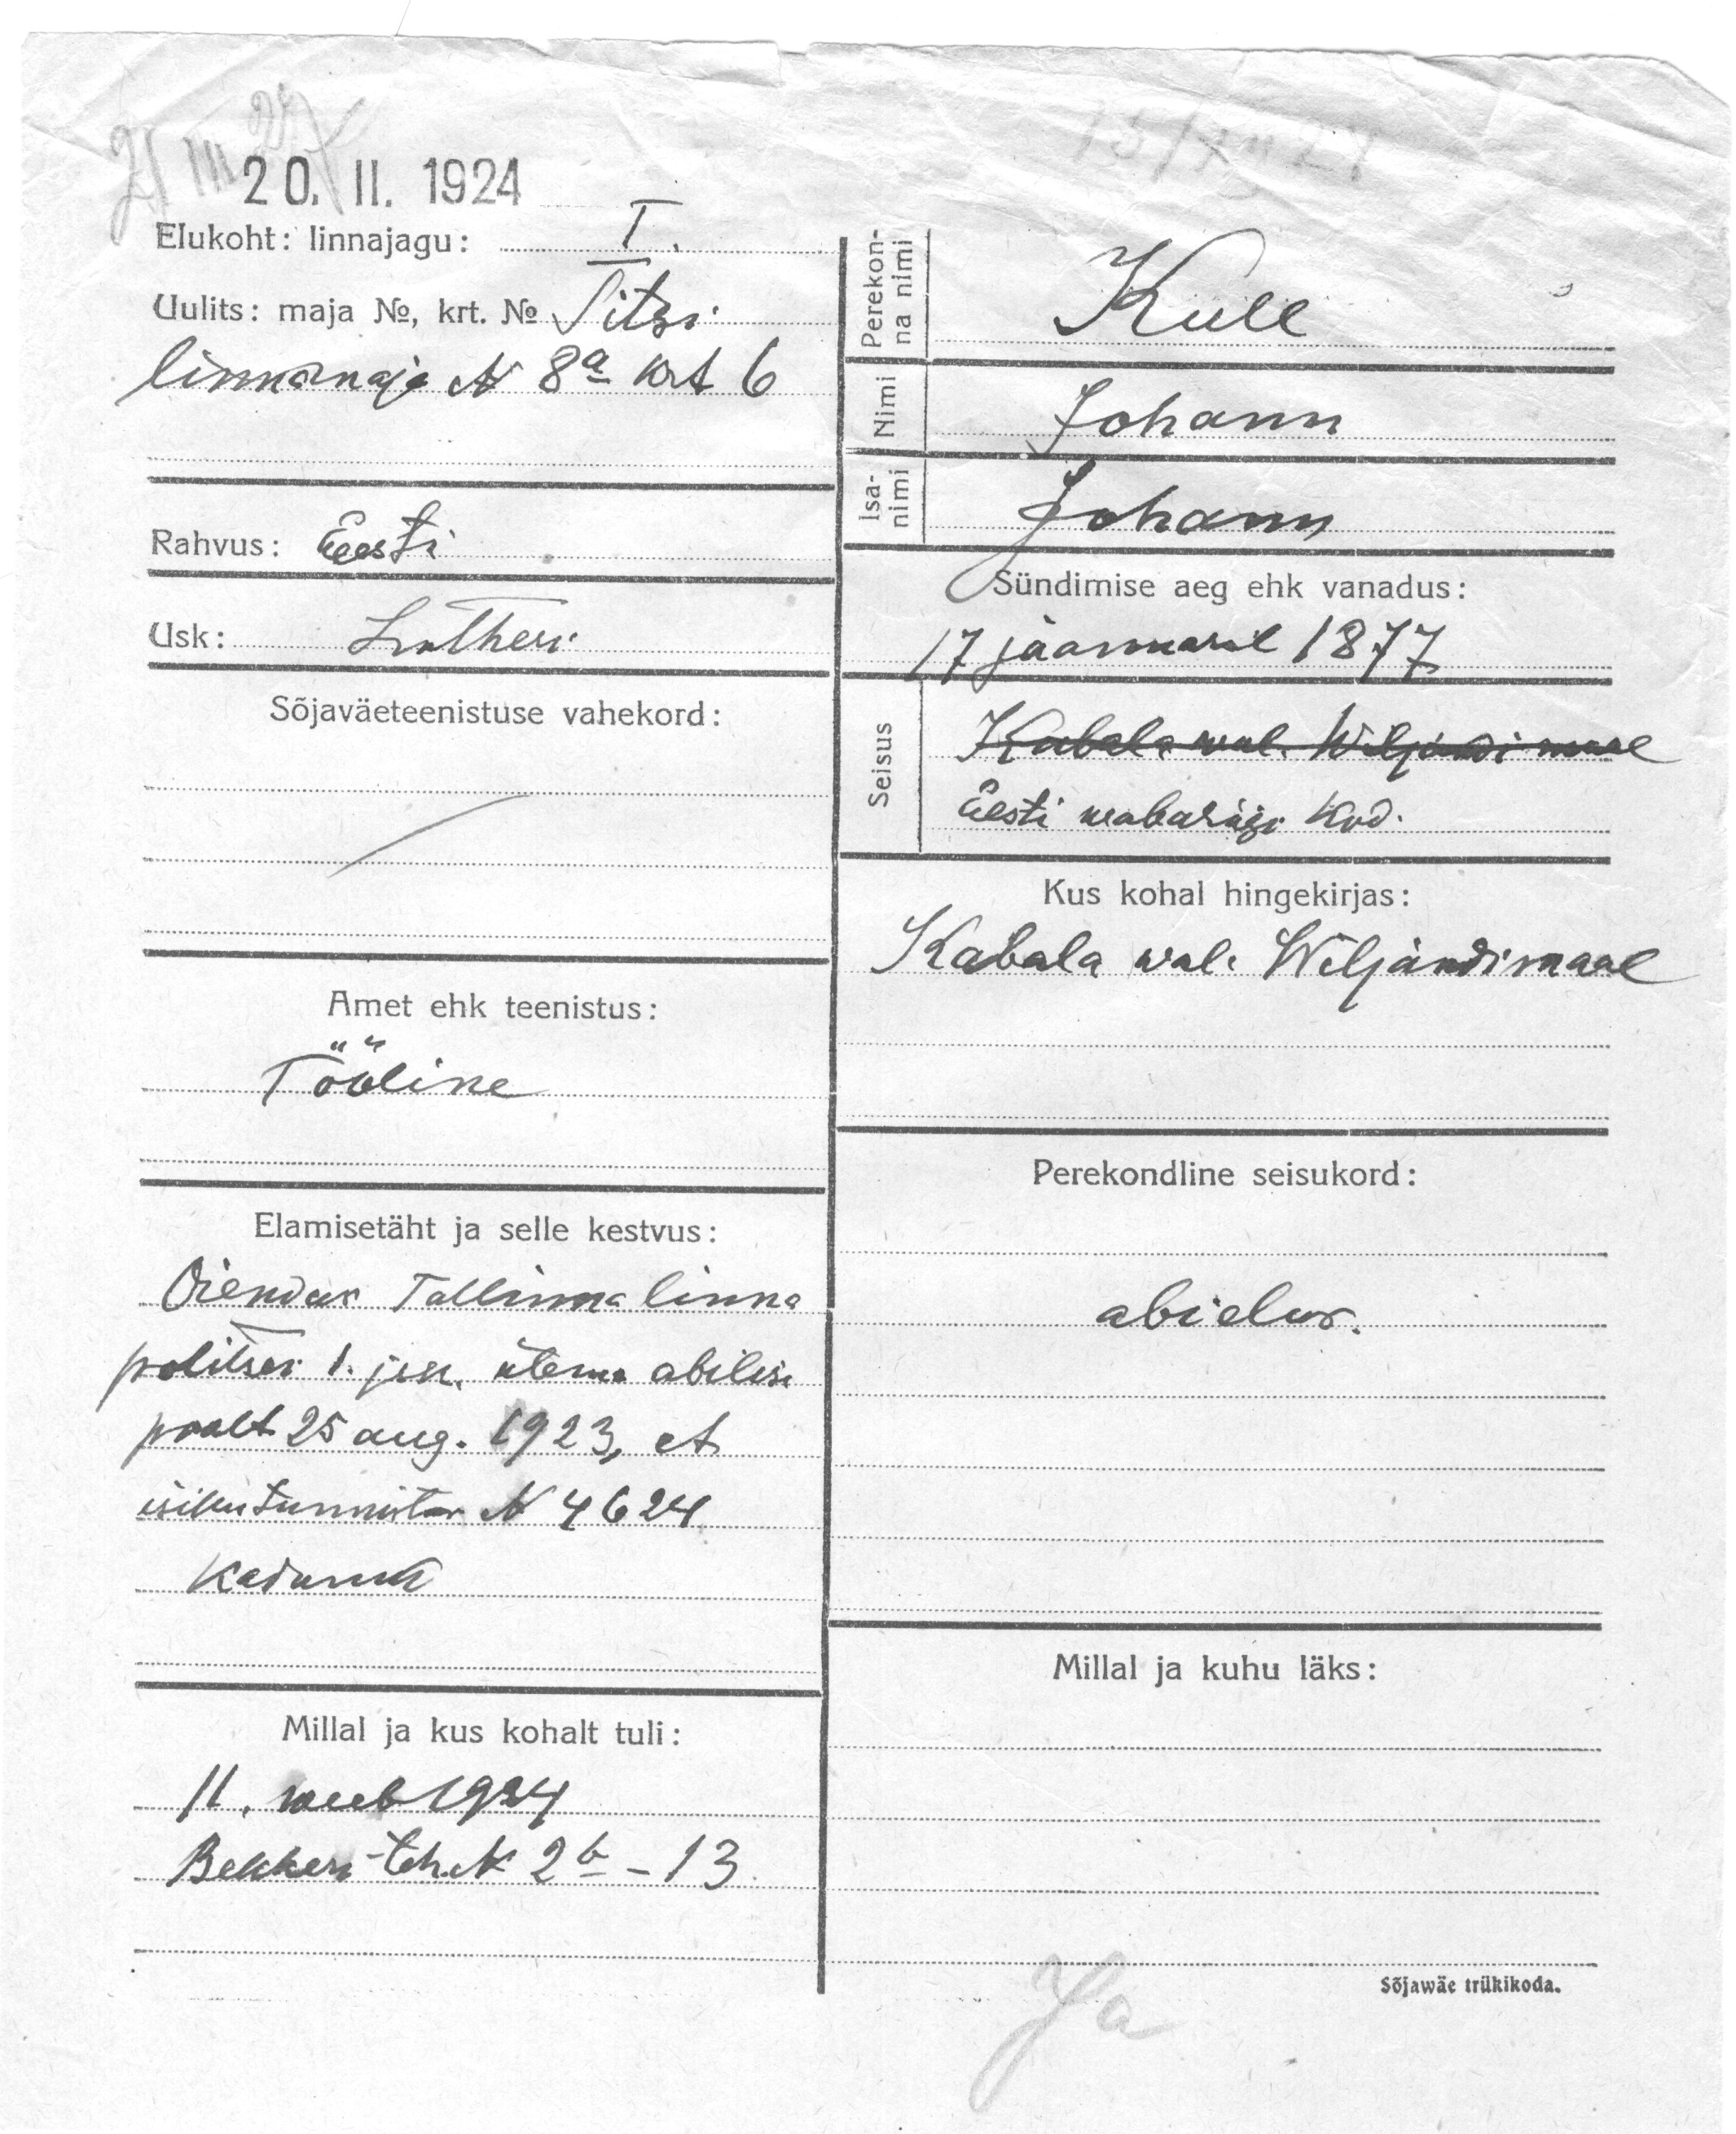 20. II. 1924
Elukoht: linnajagu: I.
Uulits: maja №, krt. № Sitsi
linnamaja N 8a krt 6
Rahvus: Eesti
Usk: Lutheri
Sõjaväeteenistuse vahekord:
Amet ehk teenistus:
Tööline
Elamisetäht ja selle kestvus:
Õiendus Tallinna linna
politsei 1. jsk. ülema abilise
poolt 25 aug. 1923, et
isikutunnistus N 4624
kadunud
Millal ja kus kohalt tuli:
11. veeb 1924
Bekkeri teh. N 2b - 13
Perekonna nimi
Küll
Nimi
Johann
Isanimi
Johann
Sündimise aeg ehk vanadus:
17 jaanuaril 1877
Seisus
Kabala wal. Wiljandi maal
Eesti wabariigi kod.
Kus kohal hingekirjas:
Kabala wal. Wiljandimaal
Perekondline seisukord:
abielus.
Millal ja kuhu läks:
Sõjawäe trükikoda.
Ja